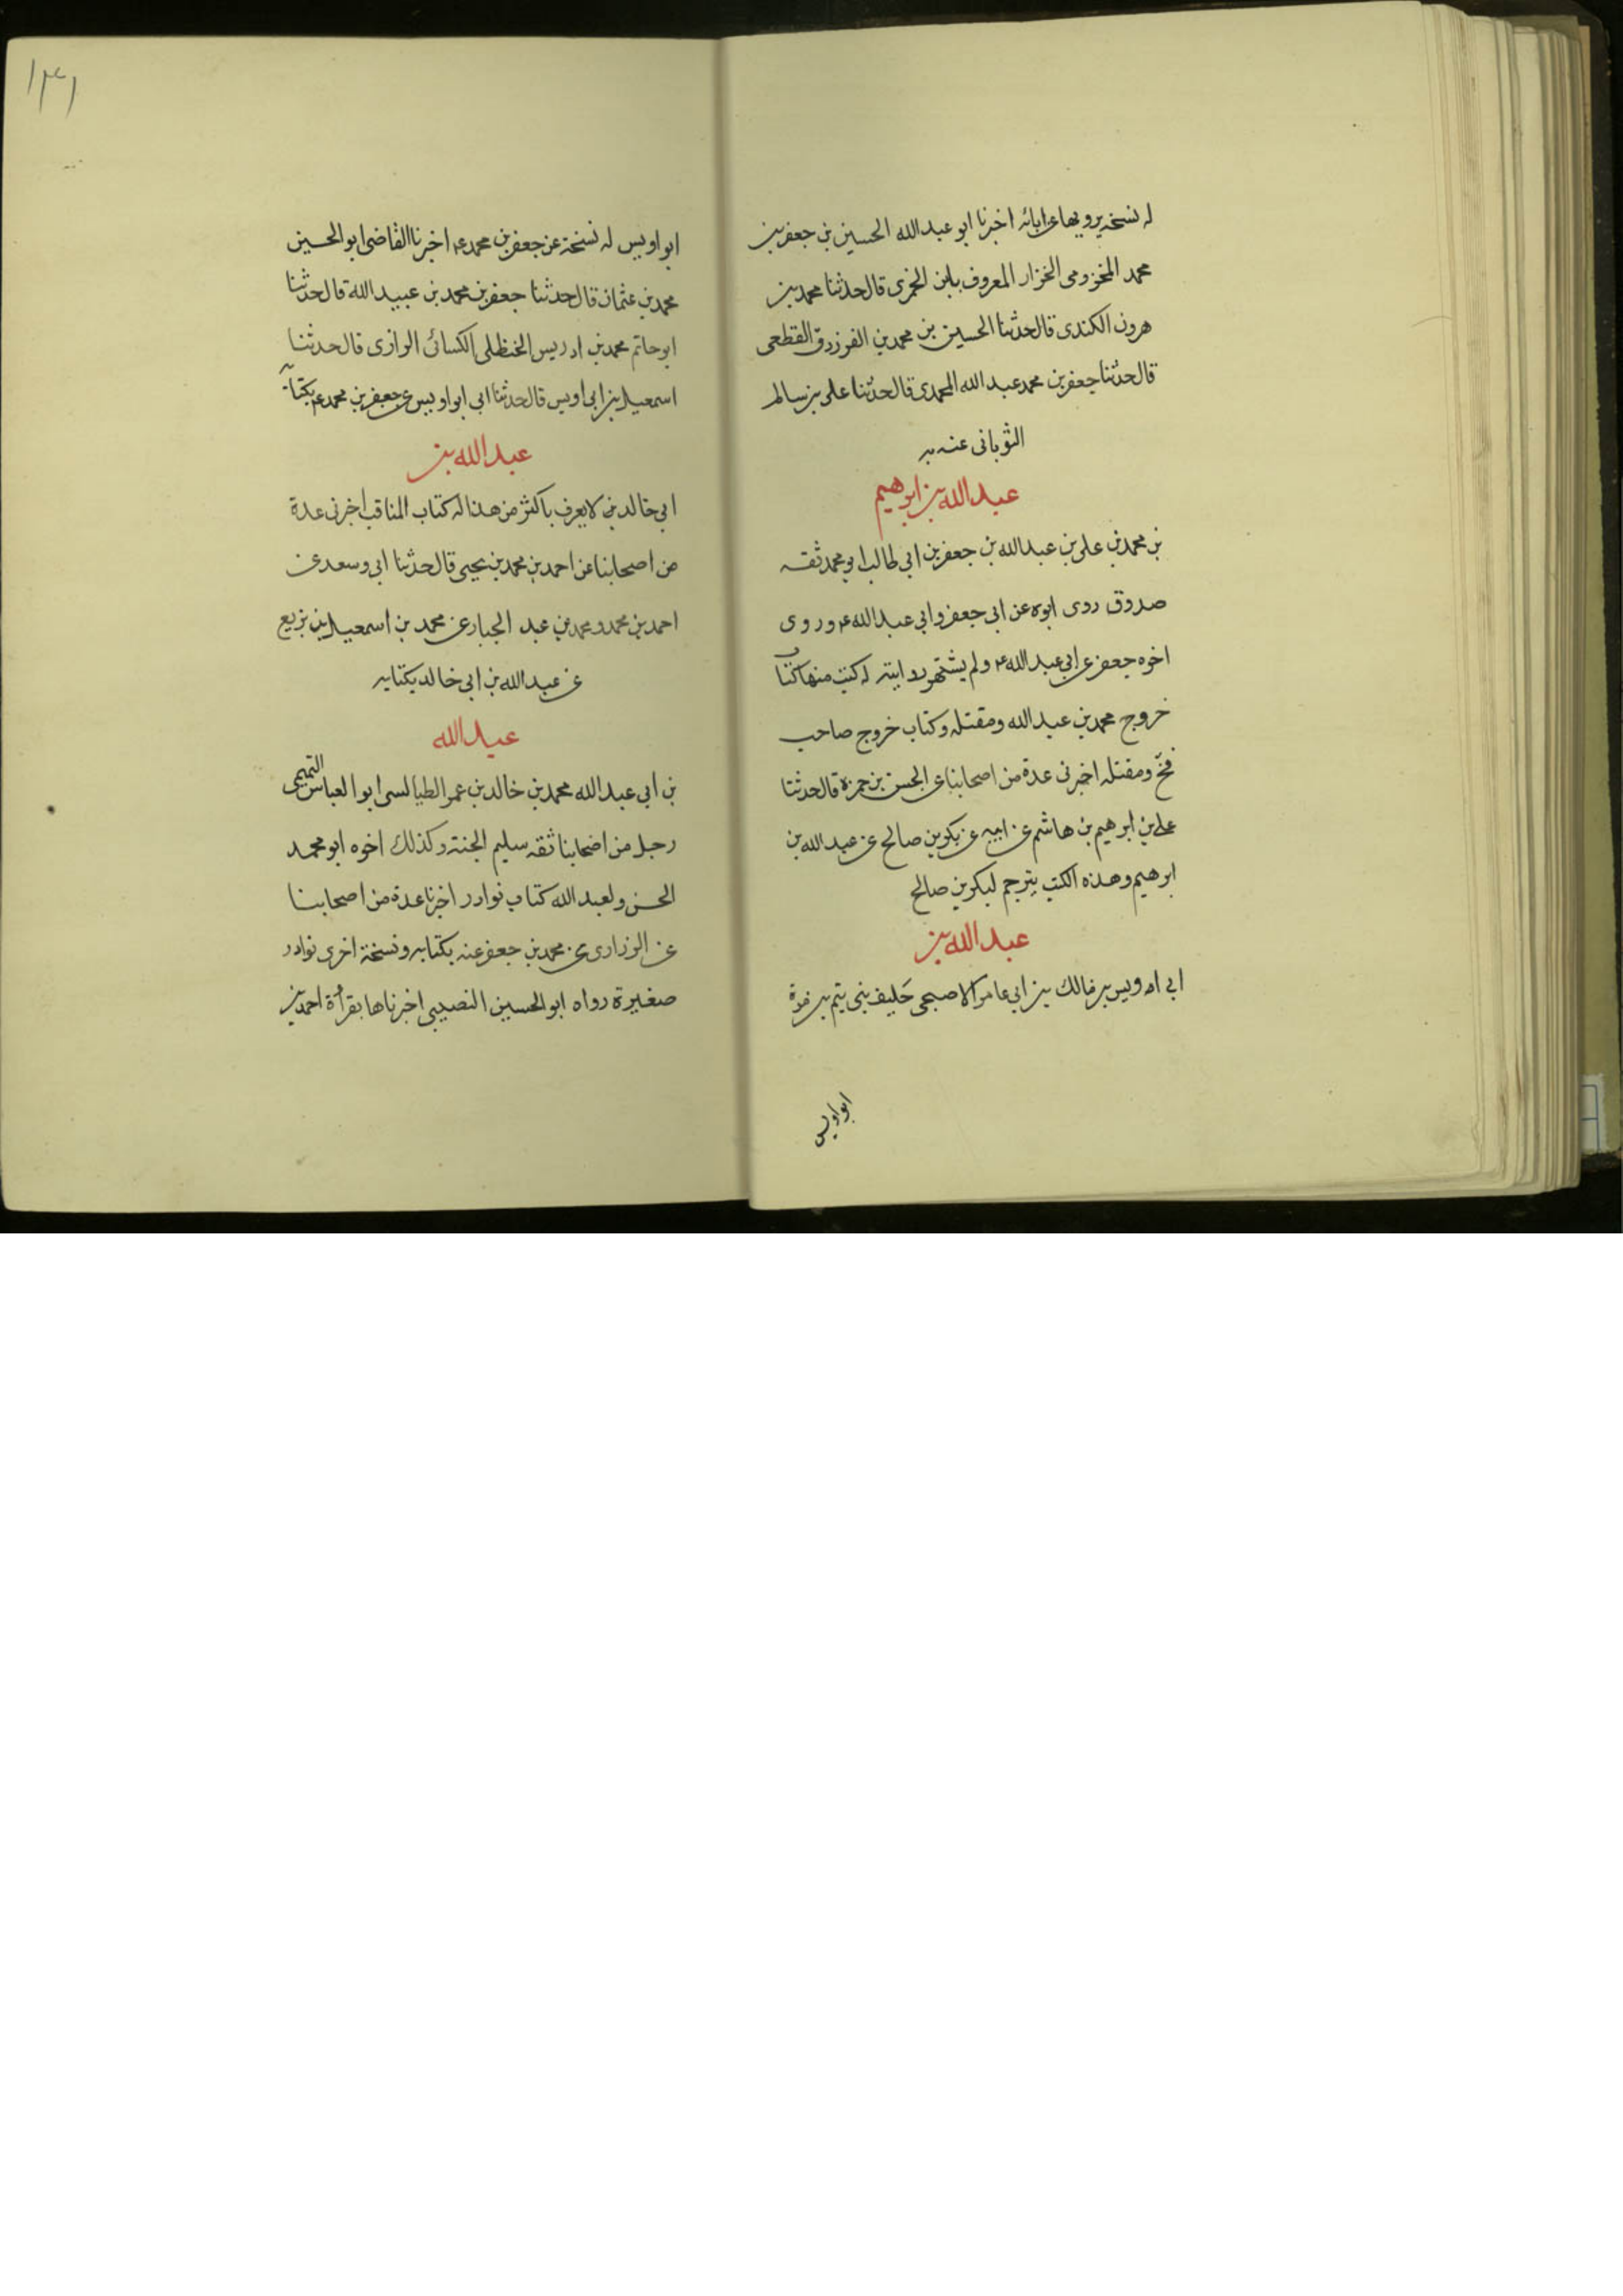 له نسخة يرويها عن ابائه اخبرنا ابو عبد الله الحسين بن جعفر بن
محمد المخزومى الخزار المعروف بابن الخمرى قال حدثنا محمد بن
هرون الكندى قال حدثنا الحسين بن محمد بن الفرزدق القطعى
قال حدثنا جعفر بن محمد عبد الله المحمدى قال حدثنا على بن سالم
الثوبانى عنه به
عبد الله بن ابرهيم
بن محمد بن على بن عبد الله بن جعفر بن ابى طالب ابو محمد ثقه
صدوق روى ابوه عن ابى جعفر وابى عبد الله ع وروى
اخوه جعفر عن ابى عبد الله ع ولم يشتهر روايته له كتب منها كتاب
خروج محمد بن عبد الله ومقتله وكتاب خروج صاحب
فخّ ومقتله اخبرنى عدة من اصحابنا عن الحسن بن حمزة قال حدثنا
على بن ابرهيم بن هاشم عن ابيه عن بكر بن صالح عن عبد الله بن
ابرهيم وهذه الكتب يترجم لبكر بن صالح
عبد الله بن
ابى اويس بن مالك بن ابى عامر الاصبحى حليف بنى تيم بن مرة
ابو اويس
١٣١
ابو اويس له نسخة عن جعفر بن محمد ع اخبرنا القاضى ابو الحسين
محمد بن عثمان قال حدثنا جعفر بن محمد بن عبيد الله قال حدثنا
ابو حاتم محمد بن ادريس الحنظلى الكسائى الرازى قال حدثنا
اسمعيل بن ابى اويس قال حدثنا ابى ابو اويس عن جعفر بن محمد ع بكتابه
عبد الله بن
ابى خالد بن لا يعرف باكثر من هذا له كتاب المناقب اخبرنى عدة
من اصحابنا عن احمد بن محمد بن يحيى قال حدثنا ابى وسعد عن
احمد بن محمد ومحمد بن عبد الجبار عن محمد بن اسمعيل بن بزيع
عن عبد الله بن ابى خالد بكتابه
عبد الله
بن ابى عبد الله محمد بن خالد بن عمر الطيالسى ابو العباس التميمى
رجل من اصحابنا ثقه سليم الجنبة وكذلك اخوه ابو محمد
الحسن ولعبد الله كتاب نوادر اخبرنا عدة من اصحابنا
عن الزرارى عن محمد بن جعفر عنه بكتابه ونسخة اخرى نوادر
صغيرة رواه ابو الحسين النصيبى اخبرناها بقرأة احمد بن